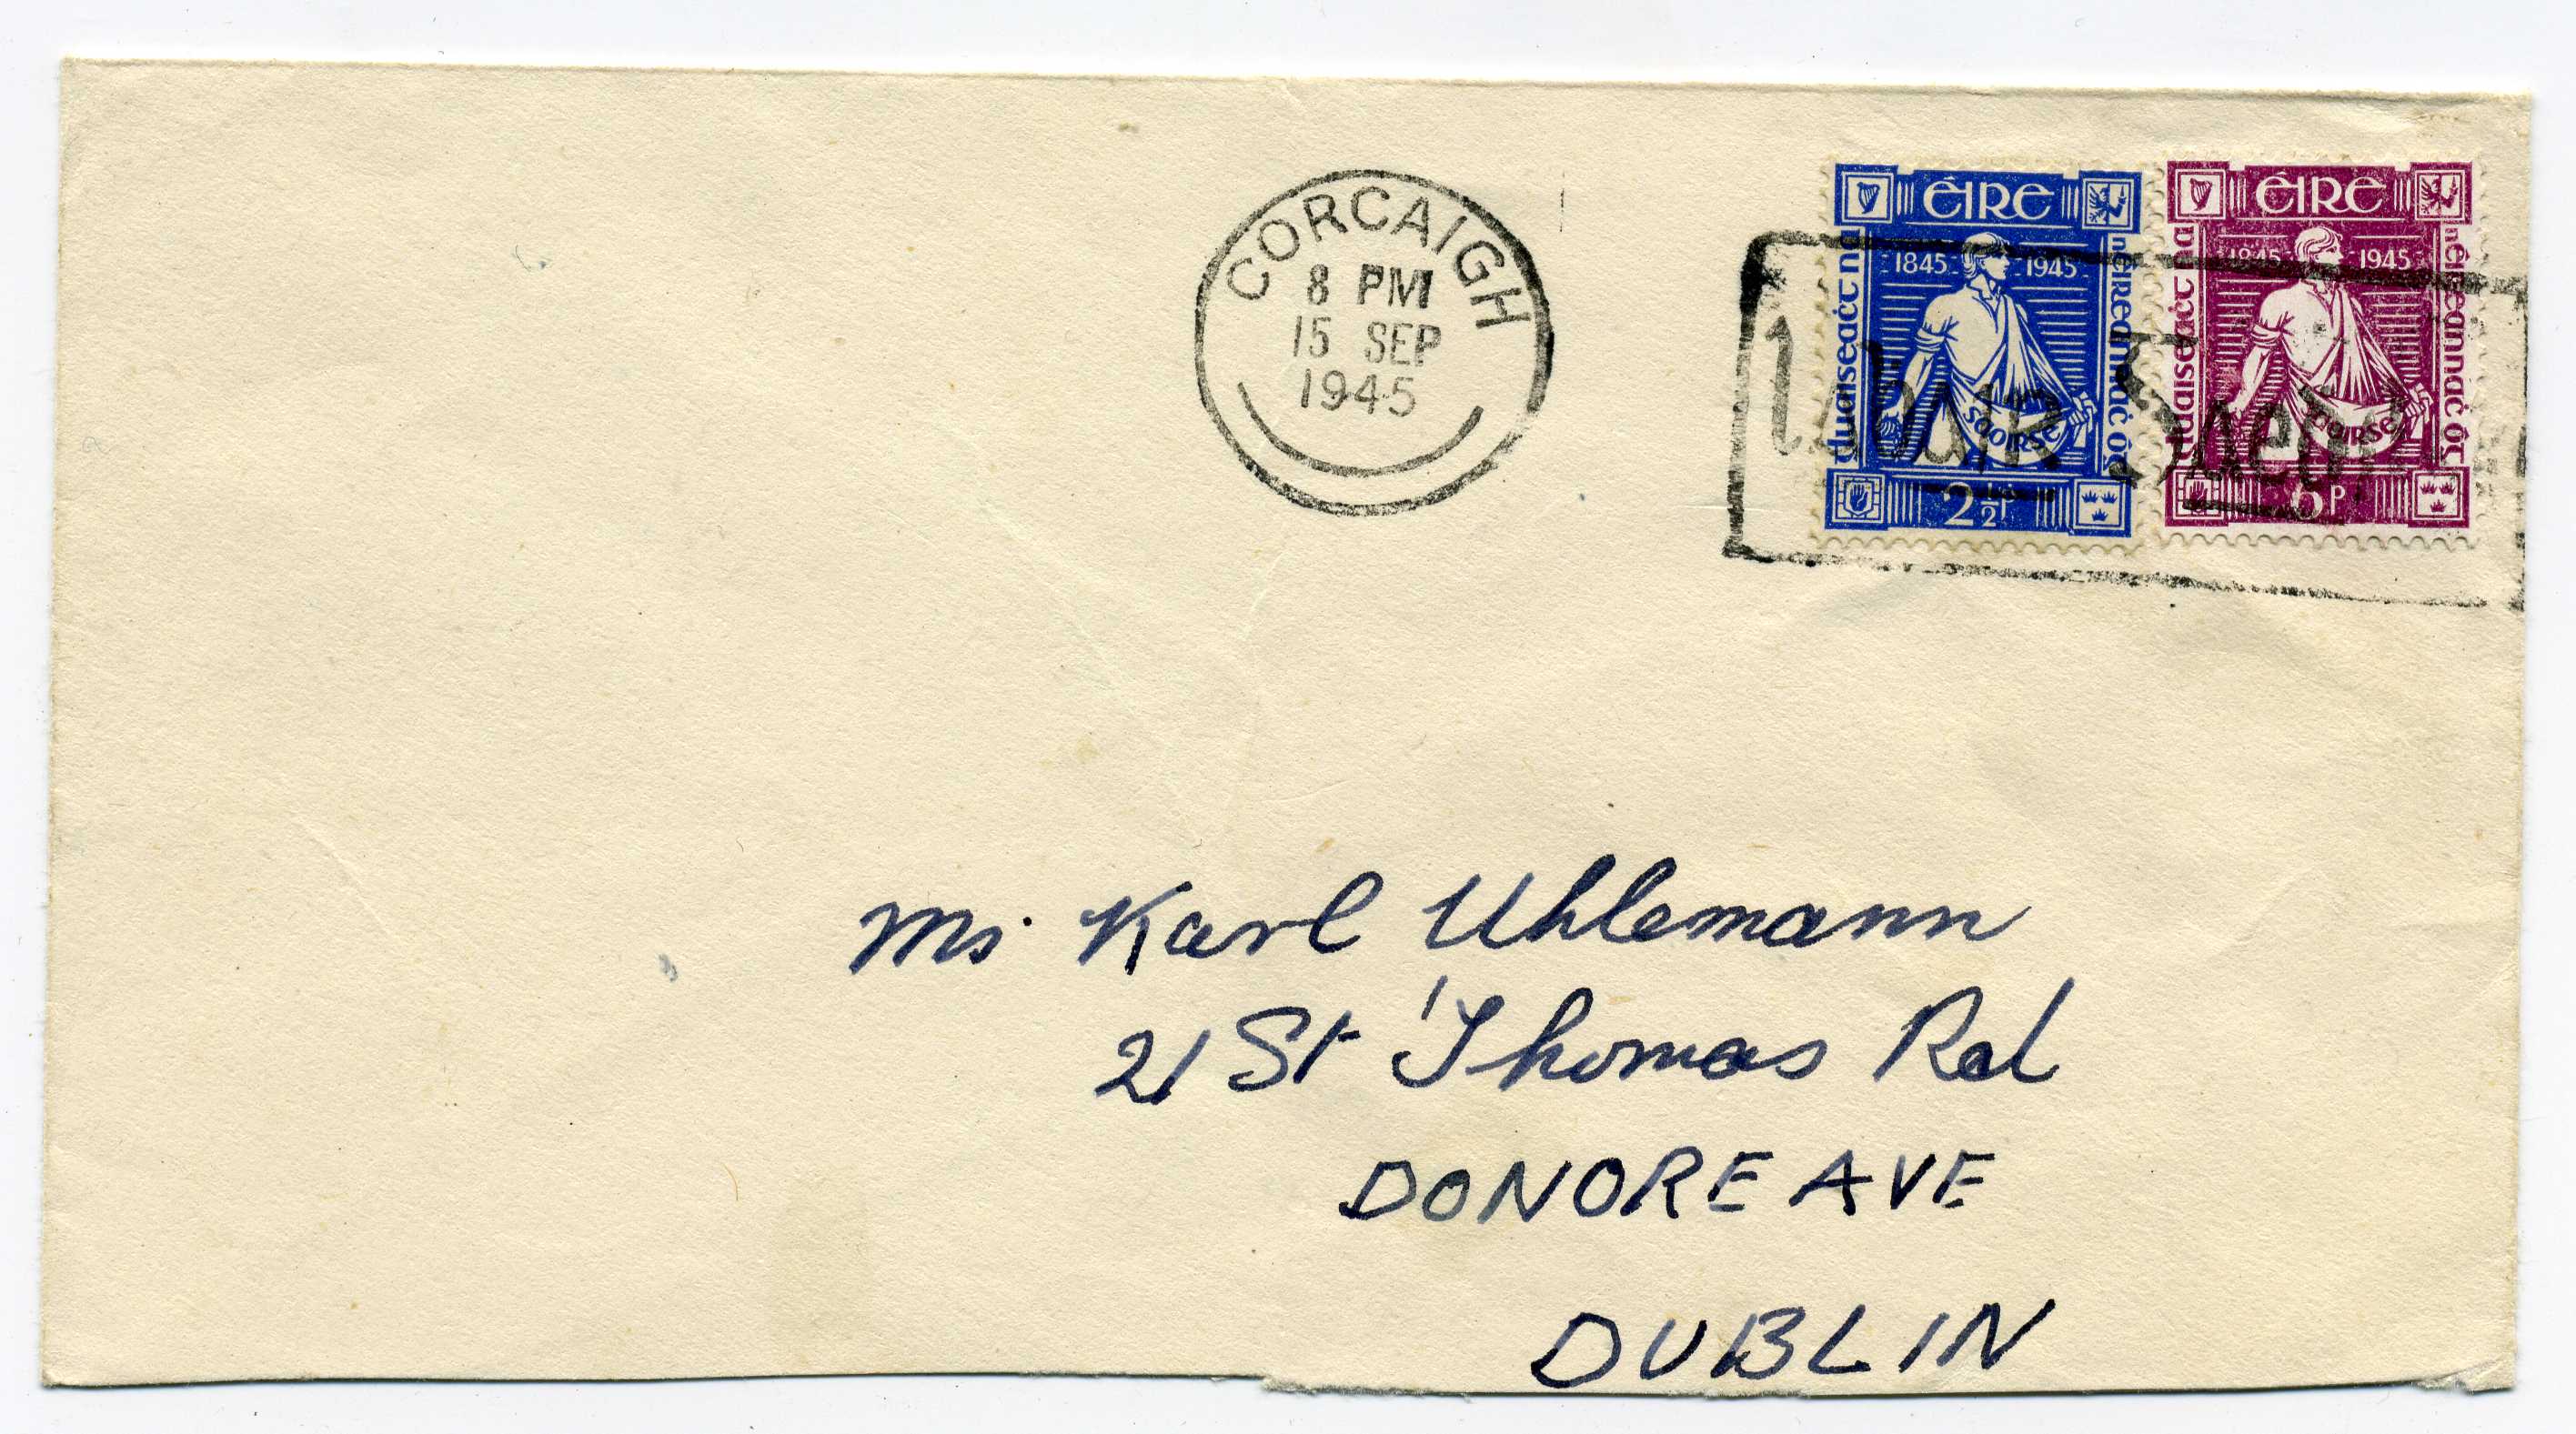 CORCAIGH
8 PM
15 SEP
1945
ÉIRE
1845 1945
duaiseaċt na
nÉireannaċ óg
Saoirse
2½P
ÉIRE
1845 1945
duaiseaċt na
nÉireannaċ óg
Saoirse
6P
Mr. Karl Uhlemann
21 St Thomas Rd
DONORE AVE
DUBLIN